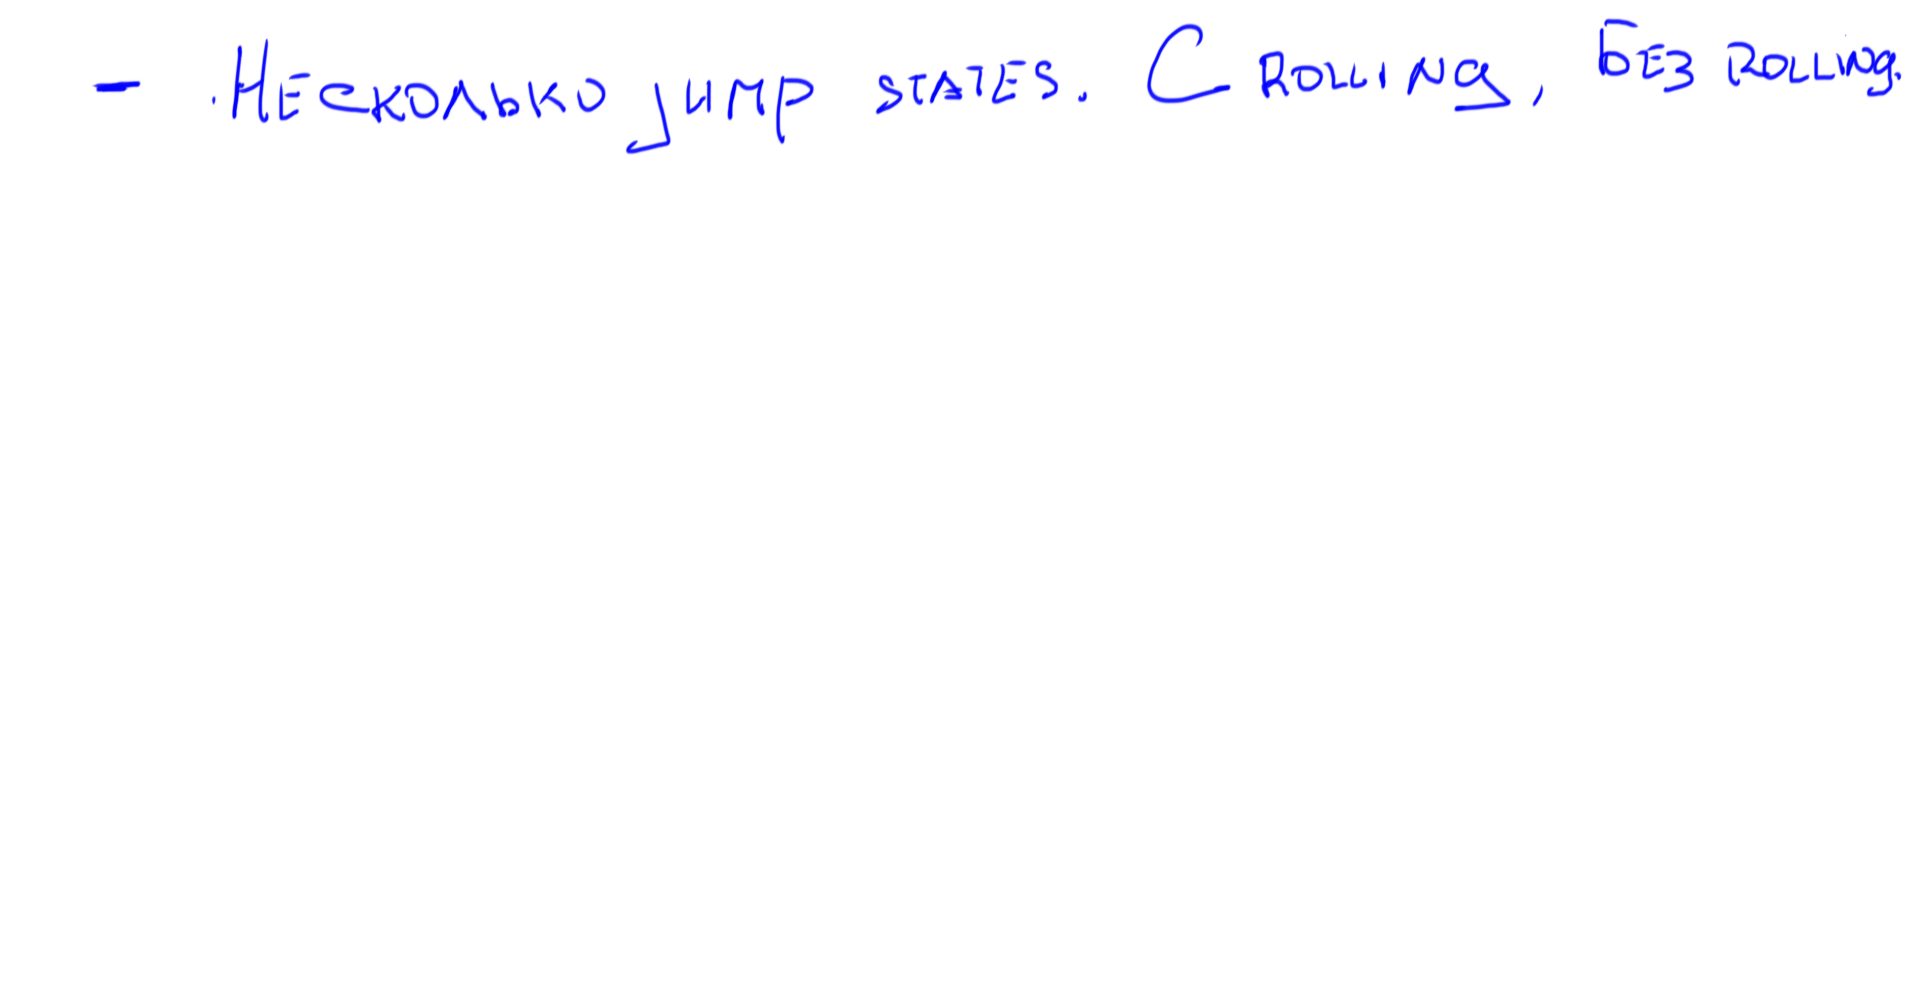 - Несколько jump states. С rolling, без rolling.